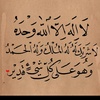 لا إله إلا الله وحده
لا شريك له له الملك وله الحمد
وهو على كل شيء قدير